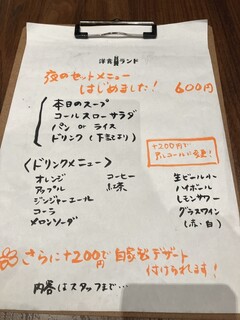 洋食ランド
夜のセットメニュー
はじめました! 600円
本日のスープ
コールスローサラダ
パン or ライス
ドリンク(下記より)
+200円で
アルコールに変更!
〈ドリンクメニュー〉
オレンジ コーヒー 生ビール小
アップル 紅茶 ハイボール
ジンジャーエール レモンサワー
コーラ グラスワイン
メロンソーダ (赤・白)
さらに+200円で自家製デザート
付けられます!
内容はスタッフまで…